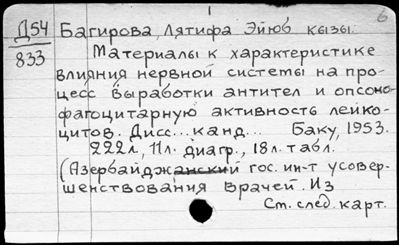 6
Д54 Багирова, Лятифа Эйюб кызы.
833 Материалы к характеристике
влияния нервной системы на про-
цесс выработки антител и опсоно-
фагоцитарную активность лейко-
цитов. Дисс... канд... Баку, 1953.
222л., 11л. диагр., 18л. табл.
(Азербайджанский гос. ин-т усовер-
шенствования врачей. Из
См. след. карт.